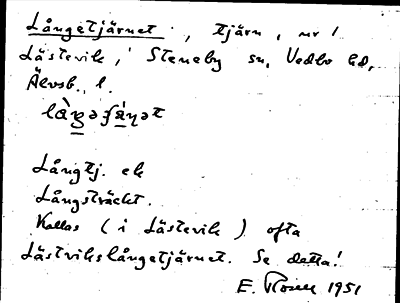 Långetjärnet, tjärn, nr 1
Lästevik, Steneby sn, Vedbo hd,
Älvsb. l.
Långtj. ek
Långsträckt.
Kallas (i Lästevik) ofta
Lästvikslångetjärnet. Se detta!
E. 1951